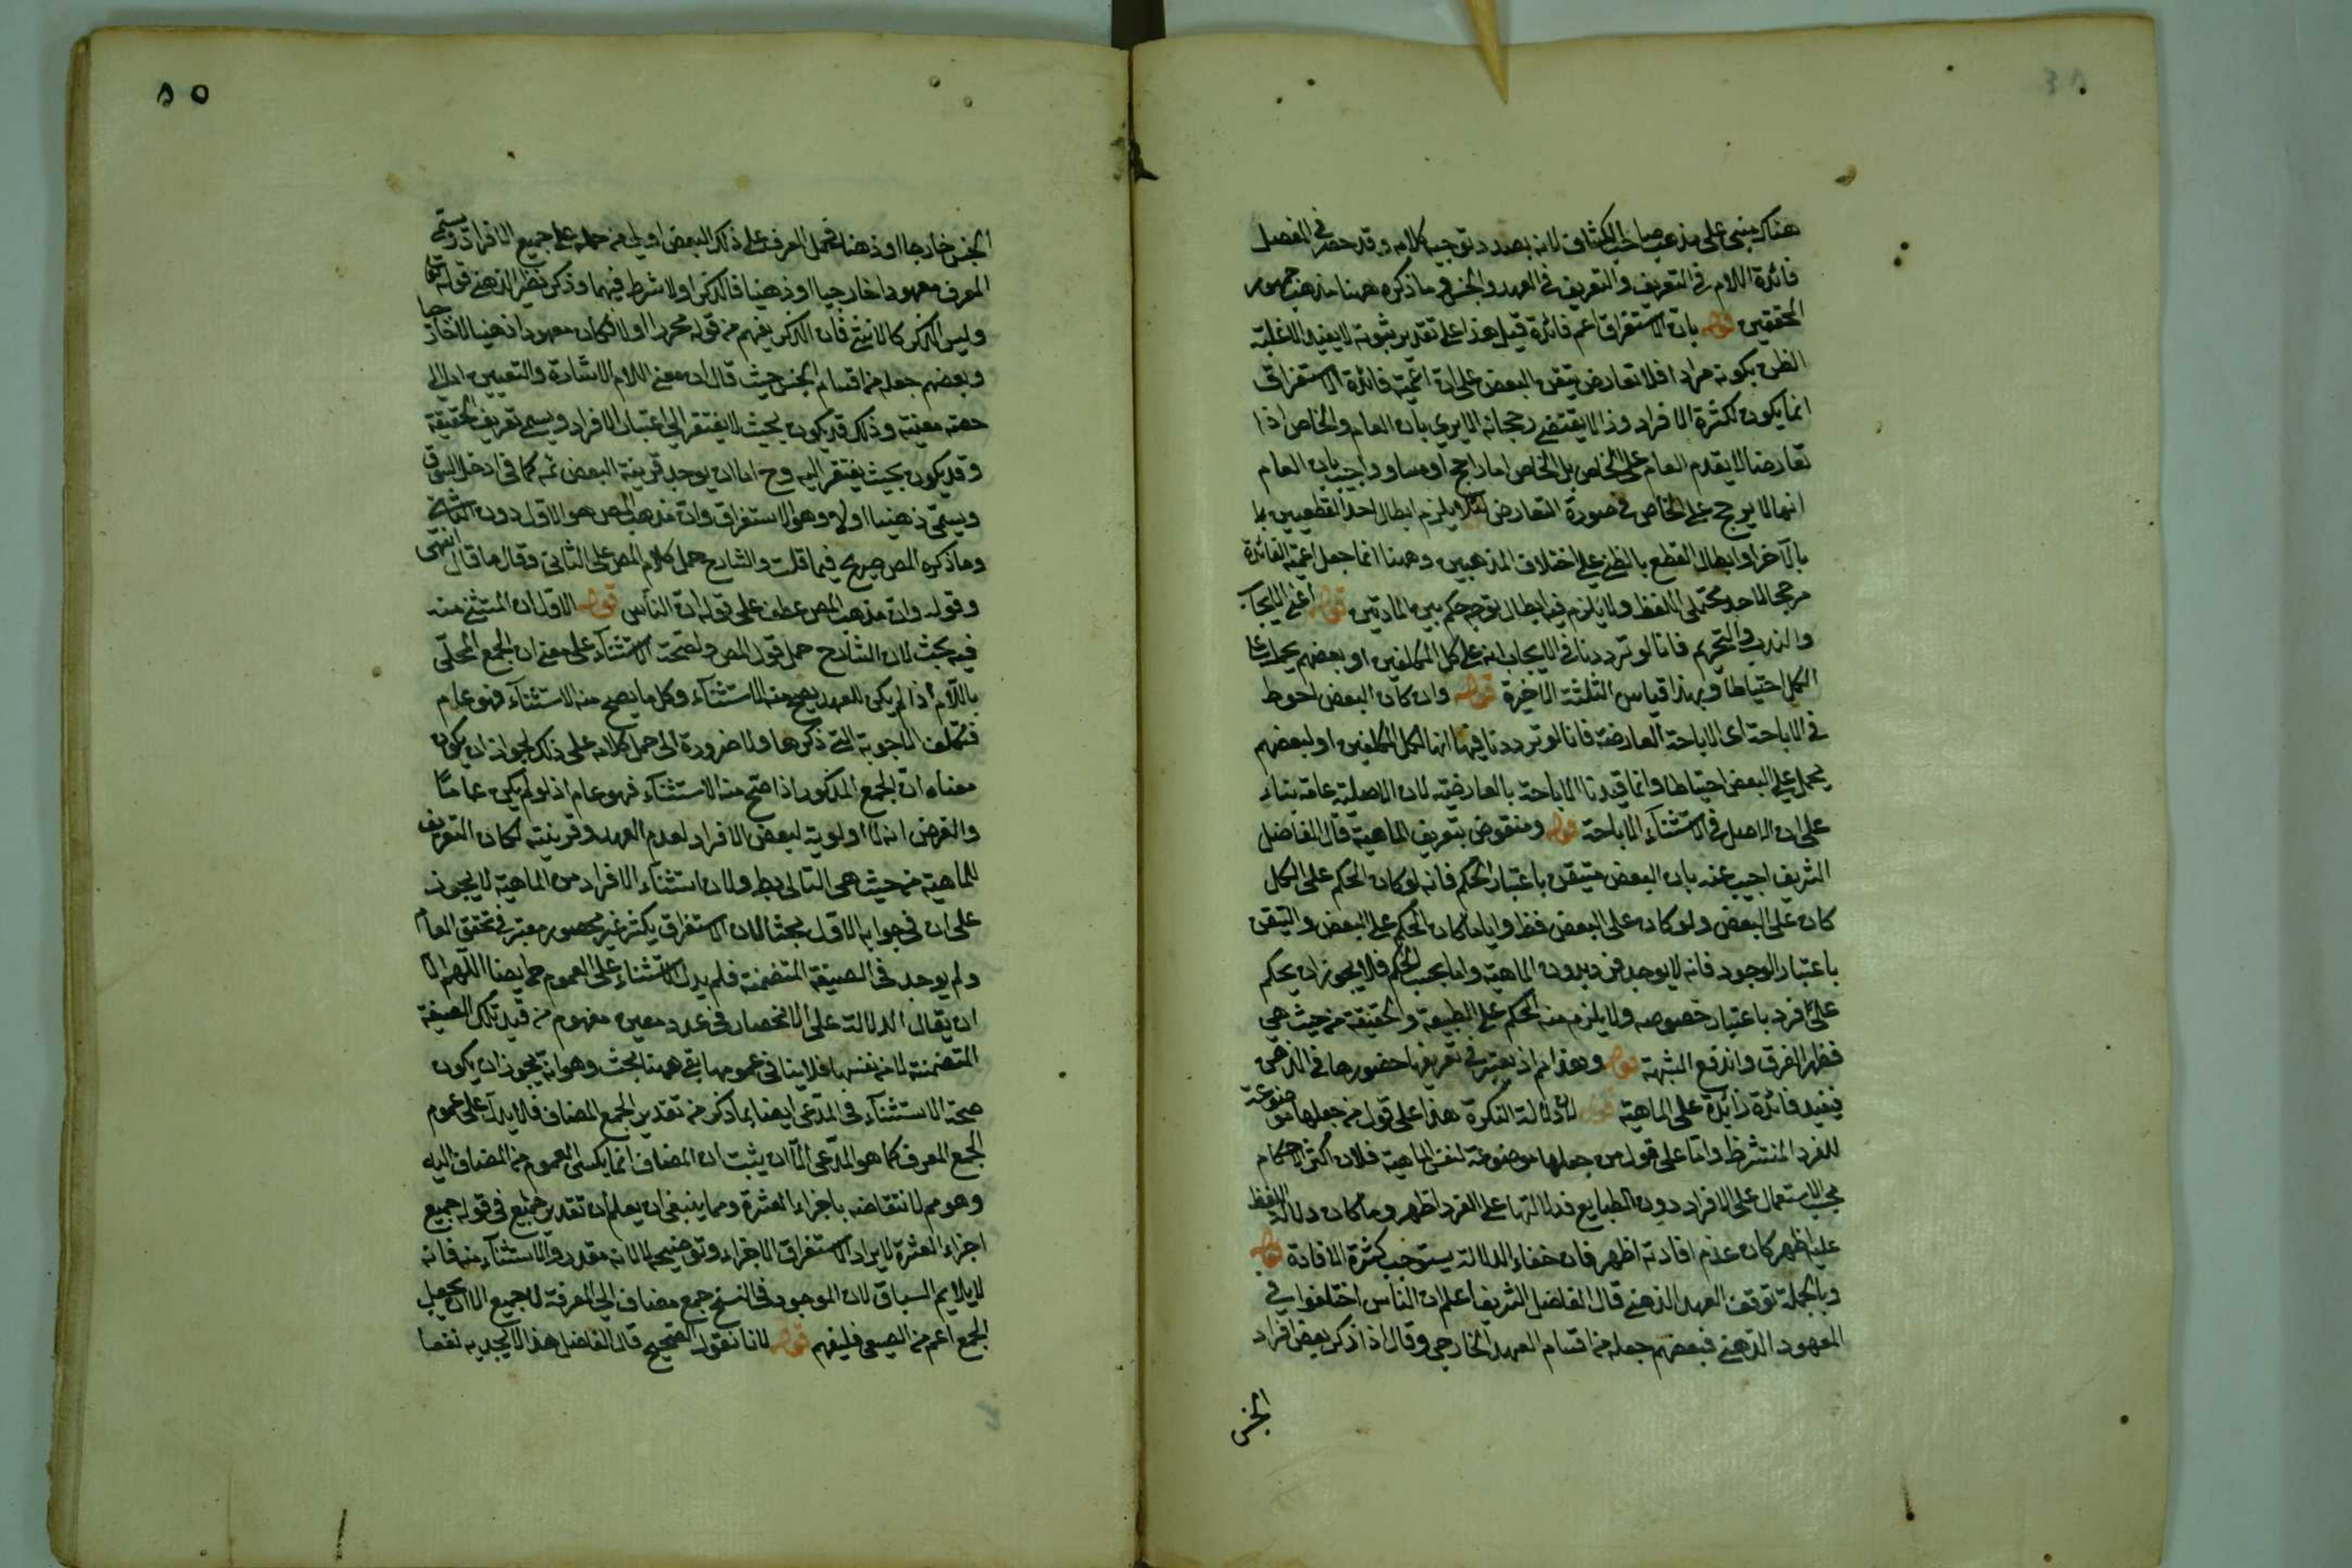 هناك مبنى على مذهب صاحب الكشاف لانه بصدد توجيه كلامه وقد حصر في المفصل
فائدة اللام في التعريف والتعريف في العهد والجنس وما ذكره ههنا مذهب جمهور
المحققين قوله بان الاستغراق اعم فائدة قيل هذا على تقدير ثبوته لا يفيد الا غلبة
الظن بكونه مرادا فلا تعارض تيقن البعض على ان اعمية فائدة الاستغراق
انما يكون لكثرة الافراد وذا لا يقتضي رجحانه الا يرى بان العام والخاص اذا
تعارضا لا يقدم العام على الخاص بل الخاص اما راجح او مساو واجيب بان العام
انما لا يرجح على الخاص في صورة التعارض لئلا يلزم ابطال احد القطعيين
بالآخر او ابطال القطع بالظن على اختلاف المذهبين وههنا انما جعل اعمية الفائدة
مرجحا لاحد محتملي اللفظ ولا يلزم فيه ابطال قوله اعني الايجاب
والندب والتحريم فانا لو ترددنا في الايجاب انه على كل المكلفين او بعضهم يحمل على
الكل احتياطا وبهذا قياس الثلثة الاخيرة قوله وان كان البعض احوط
في الاباحة اى الاباحة العارضة فانا لو ترددنا فيها انها لكل المكلفين او لبعضهم
يحمل على البعض احتياطا وانما قيدنا الاباحة بالعارضية لان الاصلية عامة بناء
على ان الاصل في الاشياء الاباحة قوله ومنقوض بتعريف الماهية قال الفاضل
الشريف اجيب عنه بان البعض متيقن باعتبار الحكم فانه لو كان الحكم على الكل
كان على البعض ولو كان على البعض فقط واياما كان الحكم على البعض والتيقن
باعتبار الوجود فانه لا يوجد فرد بدون الماهية واما بحسب الحكم فلا يجوز ان يحكم
على فرد باعتبار خصوصه ولا يلزم منه الحكم على الطبيعة والحقيقة من حيث هي
فظهر الفرق واندفع الشبهة قوله وهذا اذ يعتبر في تعريفها حضورها في الذهن
فيفيد فائدة زائدة على الماهية قوله لان دلالة النكرة هذا على قول من جعلها موضوعة
للفرد المنتشر ظ واما على قول من جعلها موضوعة لنفس الماهية فلان اكثر الاحكام
بحسب الاستعمال على الافراد دون الطبايع فدلالتها على الفرد اظهر وما كان دلالة اللفظ
عليه اظهر كان عدم افادته اظهر فان خفاء الدلالة يستوجب كثرة الافادة قوله
وبالجملة توقف العهد الذهني قال الفاضل الشريف اعلم ان الناس اختلفوا في
المعهود الذهني فبعضهم جعله من اقسام العهد الخارجي وقال اذا ذكر بعض افراد
الجنس
٨٥
الجنس خارجا او ذهنا فحمل المعرف على ذلك البعض اولى من حمله على جميع الافراد ويسمى
المعرف معهودا خارجيا او ذهنيا فالذكر اولا شرط فيهما وذكر نظير الذهني قوله تعالى
وليس الذكر كالانثى فان الذكر يفهم من قوله محررا اولا فكان معهودا ذهنيا لا خارجا
وبعضهم جعله من اقسام الجنس حيث قال ان معنى اللام الاشارة والتعيين اما الى
حصة معينة وذلك قد يكون بحيث لا يفتقر الى اعتبار الافراد ويسمى تعريف الحقيقة
وقد يكون بحيث يفتقر اليه وح اما ان يوجد قرينة البعض ثمه كما في ادخل السوق
ويسمى ذهنيا اولا وهو الاستغراق وان مذهب المص هو الاول دون الثاني
وما ذكره المص صريح فيما قلت والشارح حمل كلام المص على الثاني وقال ما قال انتهى
وقوله وان مذهب المص عطف على قوله ان الناس قوله الاول ان المستثنى منه
فيه بحث لان الشارح حمل قول المص ولصحة الاستثناء على معنى ان الجمع المحلى
باللام اذا لم يكن للعهد يصح منه الاستثناء وكل ما يصح منه الاستثناء فهو عام
فتكلف الاجوبة التي ذكرها ولا ضرورة الى حمل كلامه على ذلك لجواز ان يكون
معناه ان الجمع المذكور اذا صح منه الاستثناء فهو عام اذ لو لم يكن عاما
والفرض انه لا اولوية لبعض الافراد لعدم العهد وقرينته لكان التعريف
للماهية من حيث هي التالي بط ولان استثناء الافراد من الماهية لا يجوز
على ان في جوابه الاول بحثا لان الاستغراق يكثر غير محصور معتبر في تحقق العام
ولم يوجد في الصيغة المتضمنة فلم يدل الاستثناء على العموم ح ايضا اللهم الا
ان يقال الدلالة على الانحصار في عدد معين مفهوم من قيد تلك الصيغة
المتضمنة لا من نفسها فلا ينافى عمومها بقي ههنا بحث وهو انه يجوز ان يكون
صحة الاستثناء في المدعى ايضا بما ذكر من تقدير الجمع المضاف فلا يدل على عموم
الجمع المعرف كما هو المدعى الا ان يثبت ان المضاف انما يكسى العموم من المضاف اليه
وهو مم لانتقاضه باجزاء العشرة ومما ينبغي ان يعلم ان تقدير جميع في قوله جميع
اجزاء العشرة لايراد الاستغراق الاجزاء وتوضيحه لا لانه مقدر والاستثناء منه فانه
لا يلايم السباق لان الموجود في النسخ جمع مضاف الى المعرفة لا جميع الا ان يجعل
الجمع اعم من الصيغي فليفهم قوله لانا نقول الصحيح قال الفاضل هذا لا يجديه نفعا